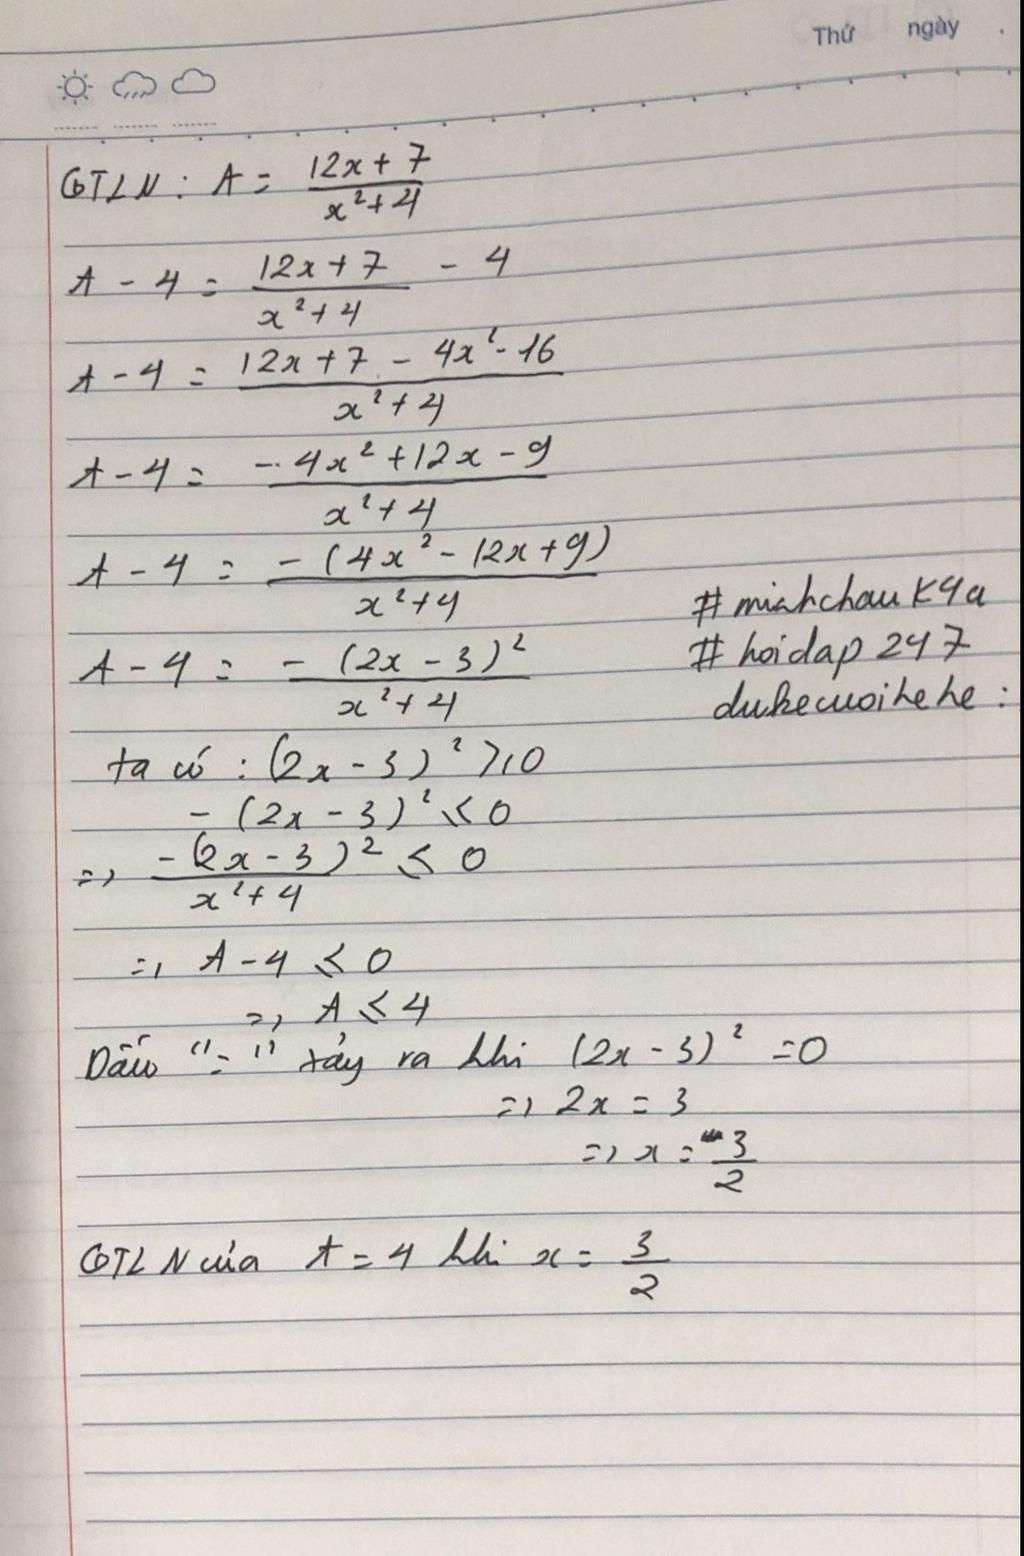 Thứ ngày .
GTLN : A = \frac{12x + 7}{x² + 4}
A - 4 = \frac{12x + 7}{x² + 4} - 4
A - 4 = \frac{12x + 7 - 4x² - 16}{x² + 4}
A - 4 = \frac{- 4x² + 12x - 9}{x² + 4}
A - 4 = \frac{- (4x² - 12x + 9)}{x² + 4}
# minhchauk4a
A - 4 = \frac{- (2x - 3)²}{x² + 4}
# hoidap 247
dukecuoihehe :
ta có : (2x - 3)² ≥ 0
- (2x - 3)² ≤ 0
=> \frac{-(2x - 3)²}{x² + 4} ≤ 0
=> A - 4 ≤ 0
=> A ≤ 4
Dấu "=" xảy ra khi (2x - 3)² = 0
=> 2x = 3
=> x = \frac{3}{2}
GTLN của A = 4 khi x = \frac{3}{2}